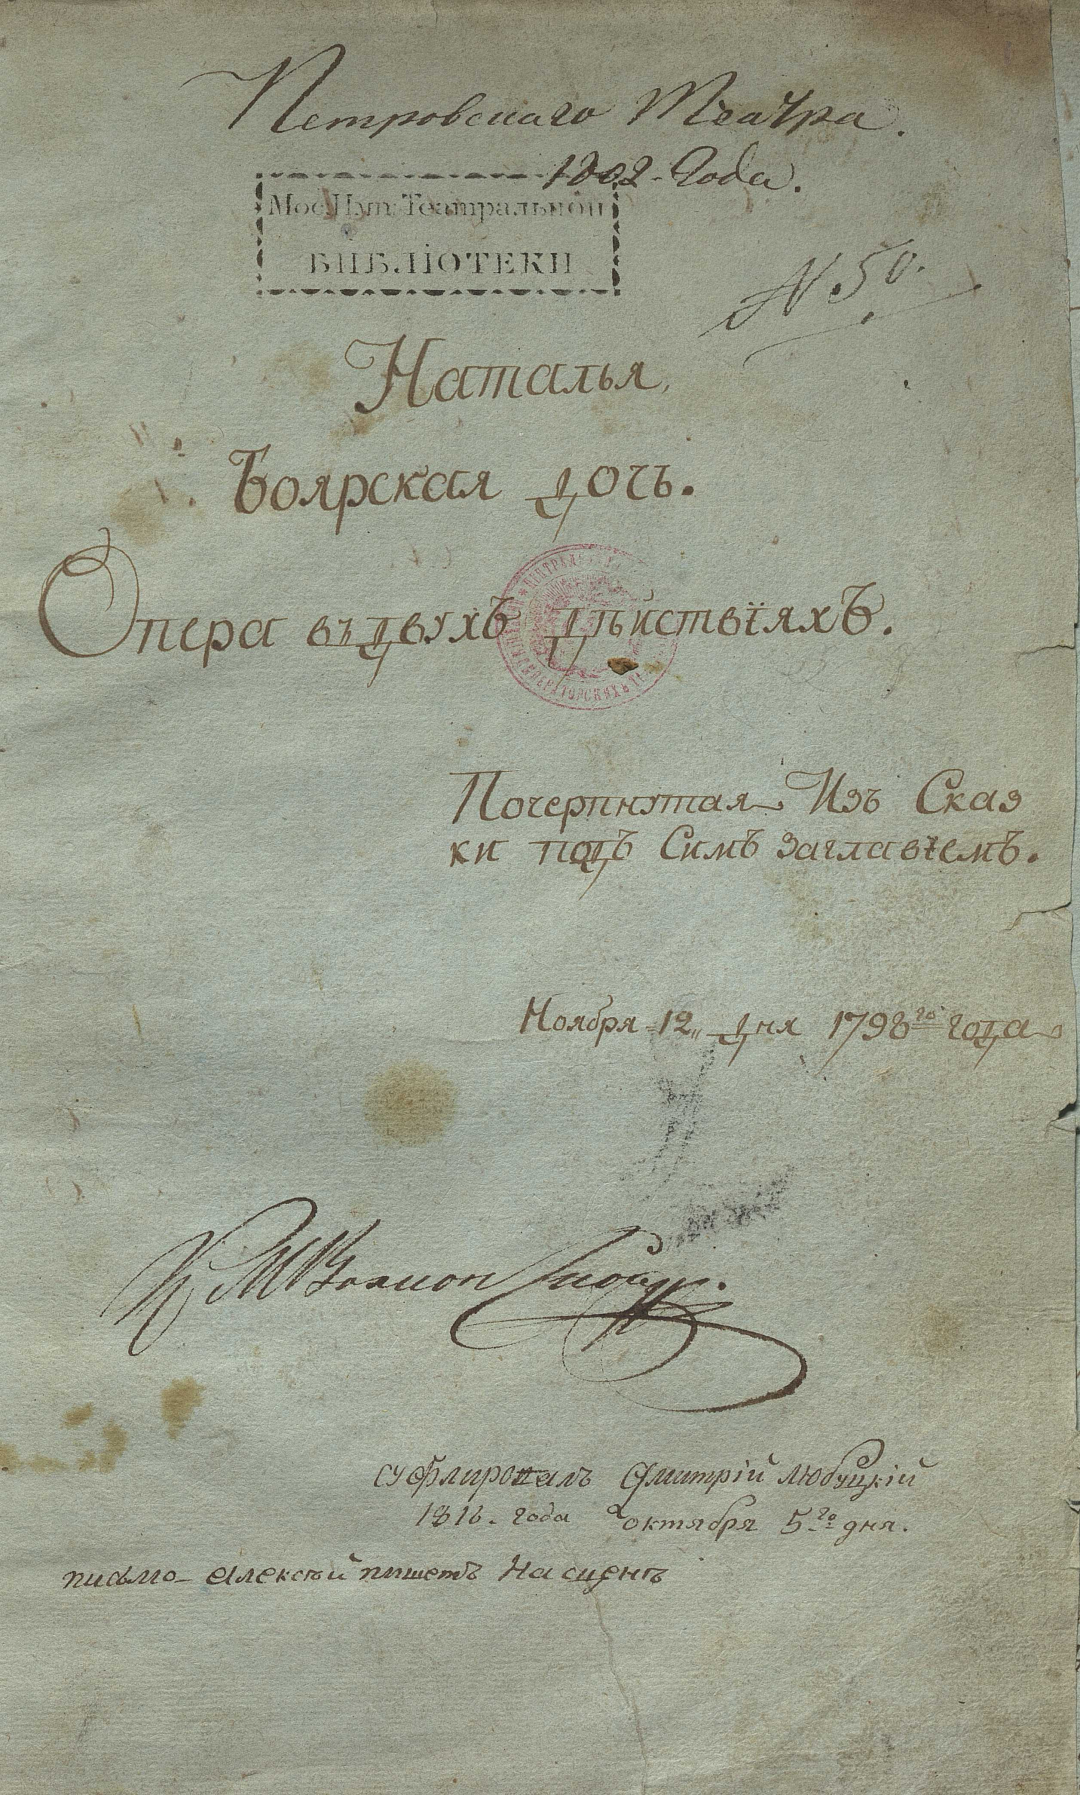 Петровскаго Театра.
1802. Года.
Мос: Театральной
БИБЛІОТЕКИ
N 50.
Наталья,
Боярская дочь.
Опера въ двухъ дѣйствіяхъ.
Почерпнутая Изъ Сказ
ки подъ Симъ заглавіемъ.
Ноября 12„ дня 1798го года
суфлировалъ Дмитрій Любуцкій
1816. года октября 5.го дня.
письмо- Алексѣй пишетъ На сценѣ